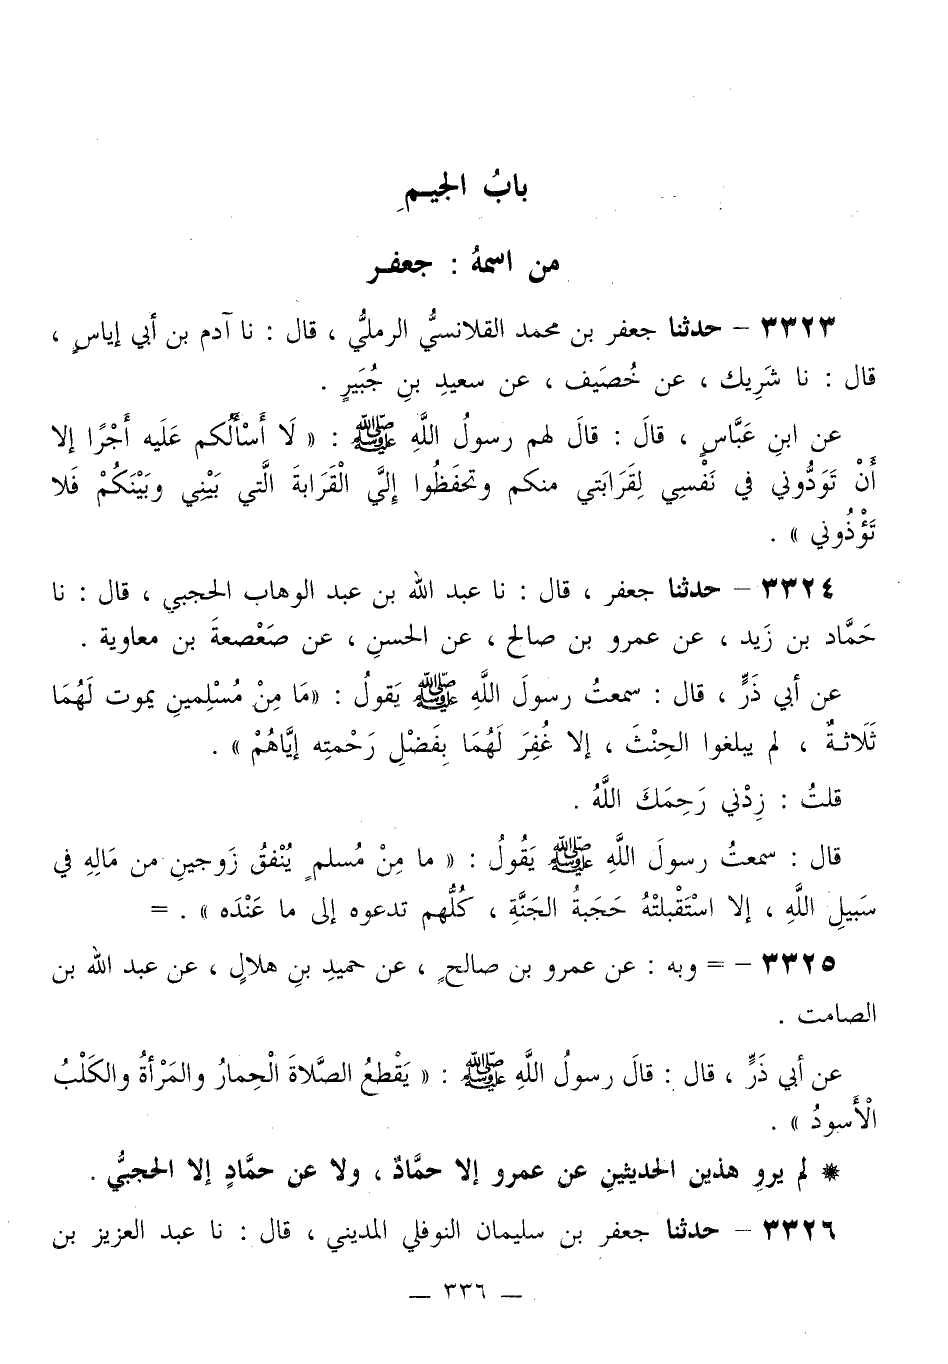 بابُ الجيـمِ
من اسمهُ : جعفـر
٣٣٢٣ – حدثنا جعفر بن محمد القلانسيُّ الرمليُّ ، قال : نا آدم بن أبي إياسٍ ،
قال : نا شَرِيك ، عن خُصَيف ، عن سعيدِ بنِ جُبَيرٍ .
عن ابنِ عَبَّاسٍ ، قالَ : قالَ لهم رسولُ اللَّهِ ﷺ : « لَا أَسْأَلُكم عَلَيه أَجْرًا إلا
أَنْ تَوَدُّوني في نَفْسِي لِقرَابَتي منكم وتحفَظُوا إِلَيَّ الْقَرابةَ الَّتي بَيْنِي وبَيْنَكُمْ فَلا
تَؤْذُوني » .
٣٣٢٤ – حدثنا جعفر ، قال : نا عبد الله بن عبد الوهاب الحجبي ، قال : نا
حَمَّاد بن زَيد ، عن عمرو بن صالح ، عن الحسنِ ، عن صَعْصعةَ بن معاوية .
عن أبي ذَرٍّ ، قال : سمعتُ رسولَ اللَّهِ ﷺ يَقولُ : «مَا مِنْ مُسْلِمينِ يموت لَهُمَا
ثَلَاثـةٌ ، لم يبلغوا الحِنْثَ ، إلا غُفِرَ لَهُمَا بِفَضْلِ رَحْمتِه إيَّاهُمْ » .
قلتُ : زِدْني رَحِمَكَ اللَّهُ .
قال : سمعتُ رسولَ اللَّهِ ﷺ يَقُولُ : « ما مِنْ مُسلمٍ يُنْفقُ زَوجينِ من مَالِهِ في
سَبيلِ اللَّهِ ، إلا اسْتَقْبلتْهُ حَجَبةُ الجَنَّةِ ، كُلُّهم تدعوه إلى ما عَنْدَه » . =
٣٣٢٥ – = وبه : عن عمرو بن صالحٍ ، عن حميدِ بنِ هلالٍ ، عن عبد الله بن
الصامت .
عن أبي ذَرٍّ ، قال : قالَ رسولُ اللَّهِ ﷺ : « يَقْطعُ الصَّلاةَ الْحِمارُ والمَرْأةُ والكَلْبُ
الْأَسودُ » .
* لم يروِ هذين الحديثينِ عن عمرو إلا حمَّادٌ ، ولا عن حمَّادٍ إلا الحجبيُّ .
٣٣٢٦ – حدثنا جعفر بن سليمان النوفلي المديني ، قال : نا عبد العزيز بن
— ٣٣٦ —